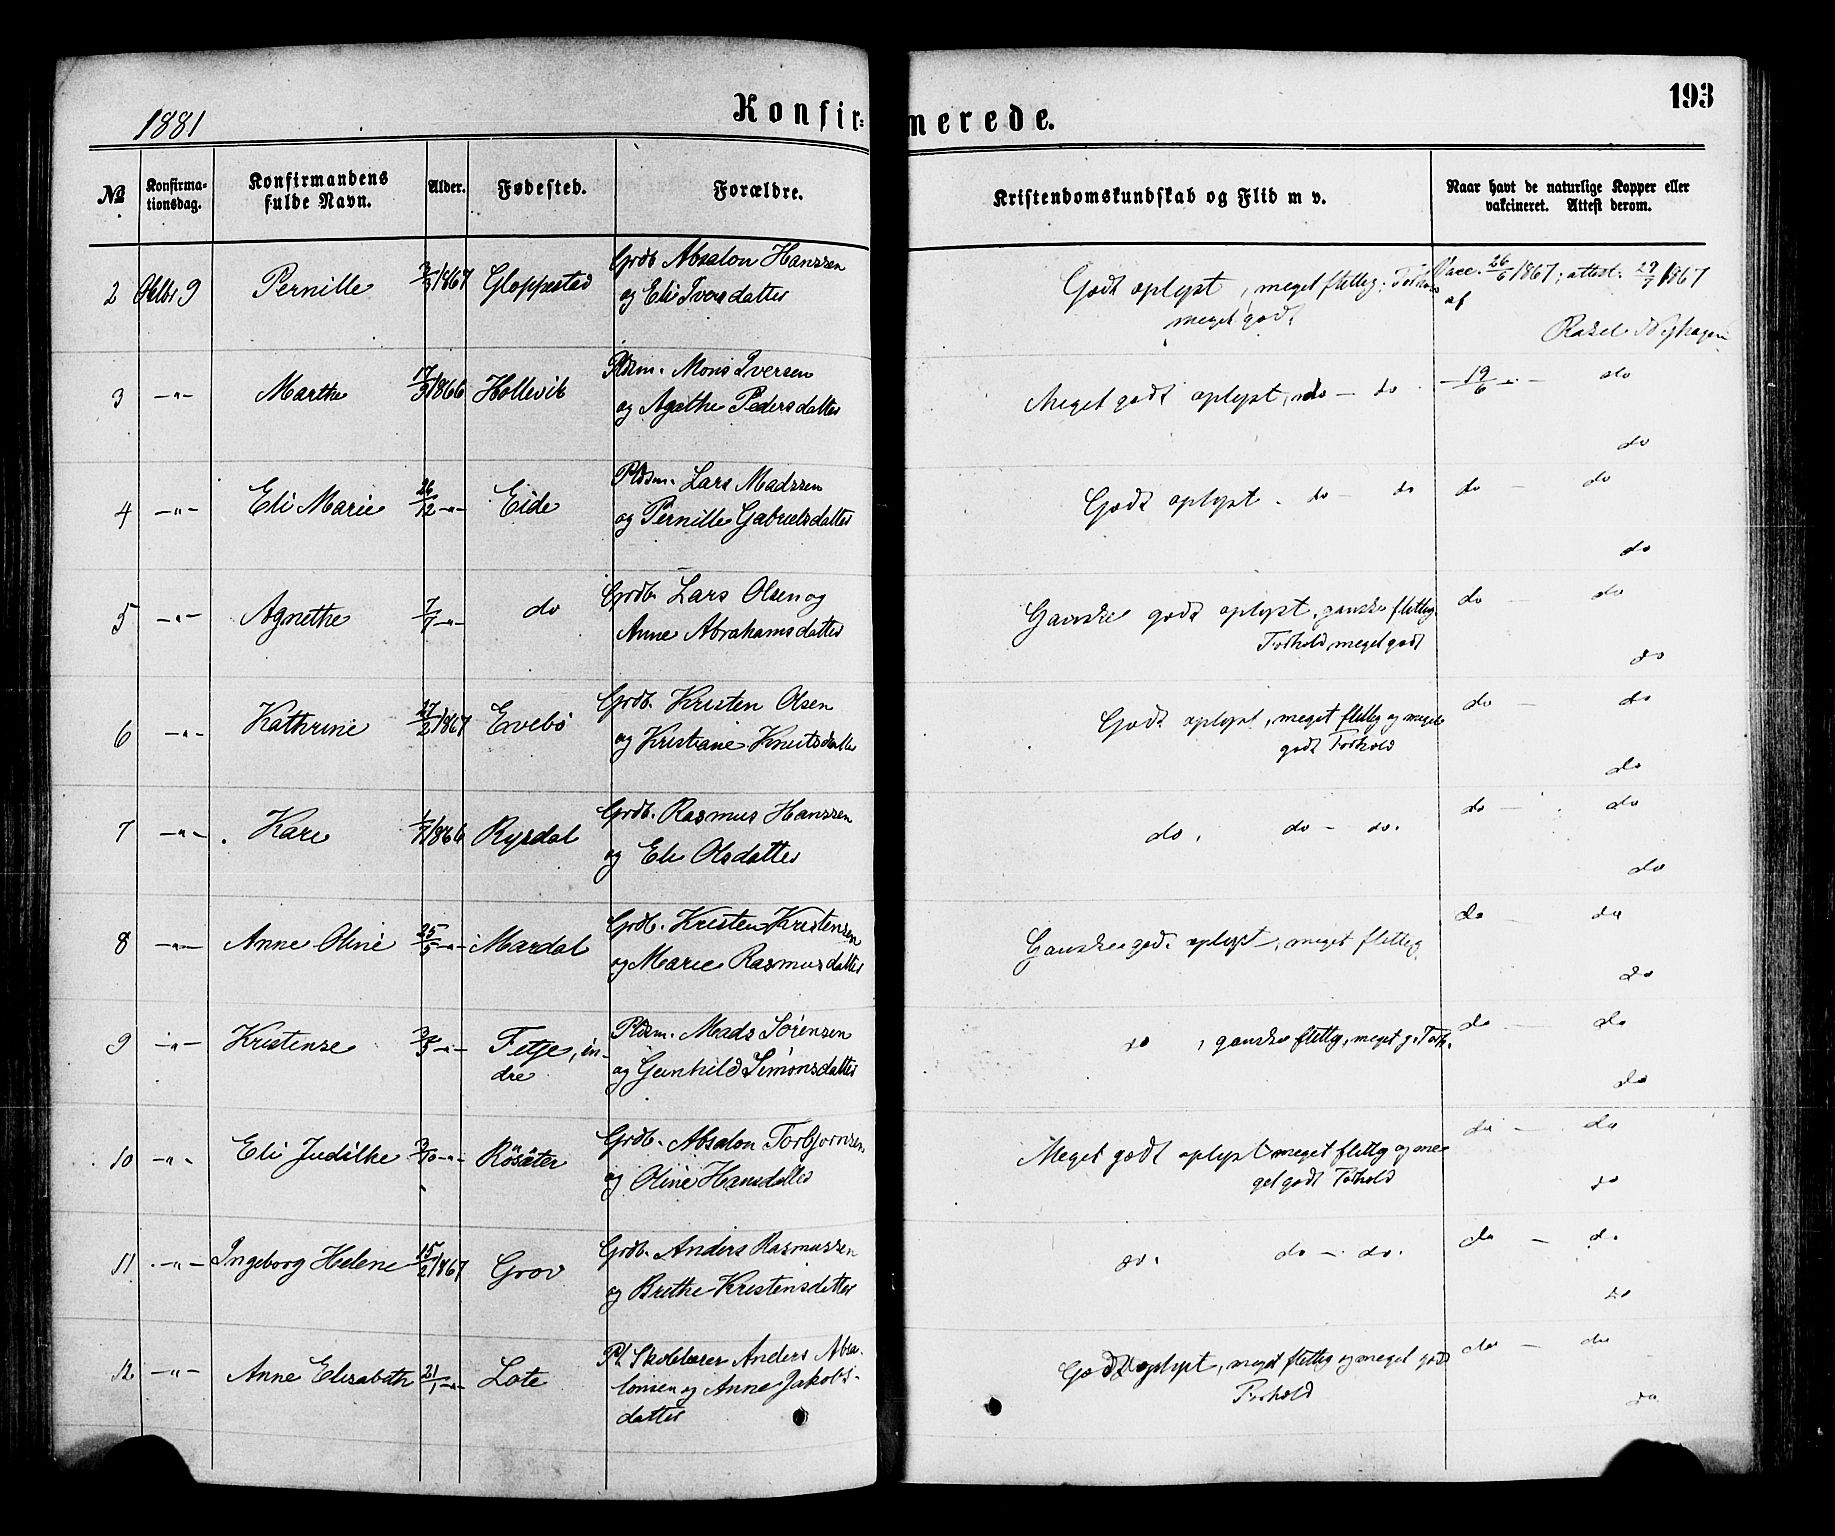 1881
Konfir=
merede.
193
№
Konfirma-
tionsdag.
Konfirmandens
fulde Navn.
Alder.
Fødested.
Forældre.
Kristendomskundskab og Flid m v.
Naar havt de naturlige Kopper eller
vakcineret. Attest derom.
2 Oktbr 9 Pernille 3/3 1867 Gloppestad Grdb Absalon Hanssen
og Eli Iversdatter
Godt oplyst, meget flittig; Forhold
meget godt
Vacc. 26/6 1867; attest. 29/7 1867
af
Rasel Nyhagen
3 -"- Marthe 17/3 1866 Hollevik Pldsm. Mons Iversen
og Agathe Pedersdatter
Meget godt oplyst, do - do
- 19/6 - do
do
4 -"- Eli Marie 26/12 -"- Eide Pldsm. Lars Madssen
og Pernille Gabrielsdatter
Godt oplyst. do - do
do - do
do
5 -"- Agnethe 7/7 -"- do Grdb. Lars Olsen og
Anne Abrahamsdatter
Ganske godt oplyst, ganske flittig
Forhold meget godt
do - do
do
6 -"- Kathrine 17/2 1867 Evebø Grdb. Kristen Olsen
og Kristiane Knutsdatter
Godt oplyst, meget flittig og meget
godt Forhold
do - do
do
7 -"- Kari 1866 Rysdal Grdb. Rasmus Hanssen
og Eli Olsdatter
do. do - do.
do - do
do
8 -"- Anne Oline 25/5 -"- Mardal Grdb. Kristen Kristensen
og Marie Rasmusdatter
Ganske god. oplyst, meget flittig
do - do
do
9 -"- Kristense 3/5 -"- Fetje, in-
dre
Pldsm. Mads Sørensen
og Gunhild Simonsdatter
do, ganske flittig, meget g. Forh.
do - do
do
10 -"- Eli Judithe 3/10 -"- Røsæter Grdb. Absalon Torbjørnsen
og Oline Hansdatter
Meget godt oplyst meget flittig og me
get godt Forhold
do - do
do
11 -"- Ingeborg Helene 15/2 1867 Grov Grdb. Anders Rasmussen
og Brithe Kristensdatter
do. do - do.
do - do
do
12 -"- Anne Elisabeth 21/1 -"- Lote Pl. Skolelærer Anders Absa-
lonsen og Anne Jakobs-
datter
Godt oplyst, meget flittig og meget godt
Forhold
do - do
do